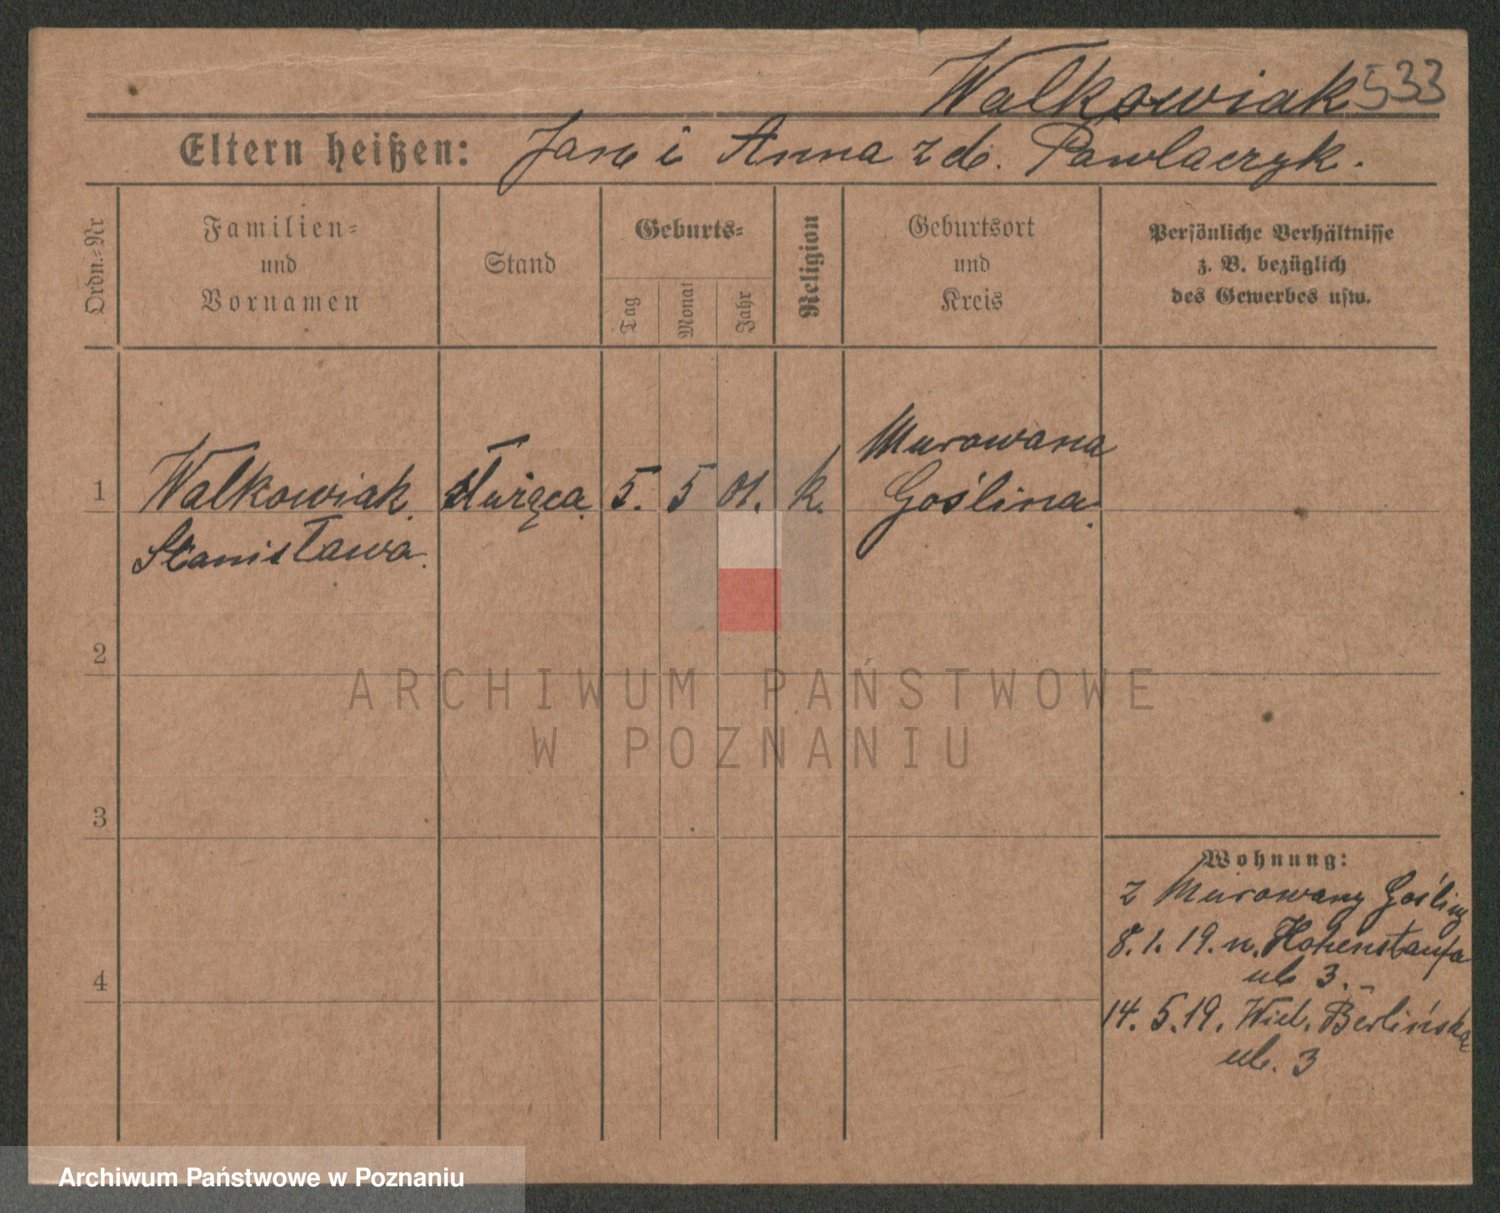 Walkowiak 533
Eltern heißen: Jan i Anna z d. Pawlaczyk.
Ordn.-Nr
Familien- und Vornamen
Stand
Geburts-
Tag
Monat
Jahr
Religion
Geburtsort und Kreis
Persönliche Verhältnisse
z. B. bezüglich
des Gewerbes usw.
Murowana
1 Walkowiak służąca 5. 5 01. k. Goślina.
Stanisława.
2
ARCHIWUM PAŃSTWOWE
W POZNANIU
3
Wohnung:
z Murowany Gośliny
8.1.19. n. Hohenstaufa
ul. 3.
4
14.5.19. Wiel. Berlińska
ul. 3
Archiwum Państwowe w Poznaniu